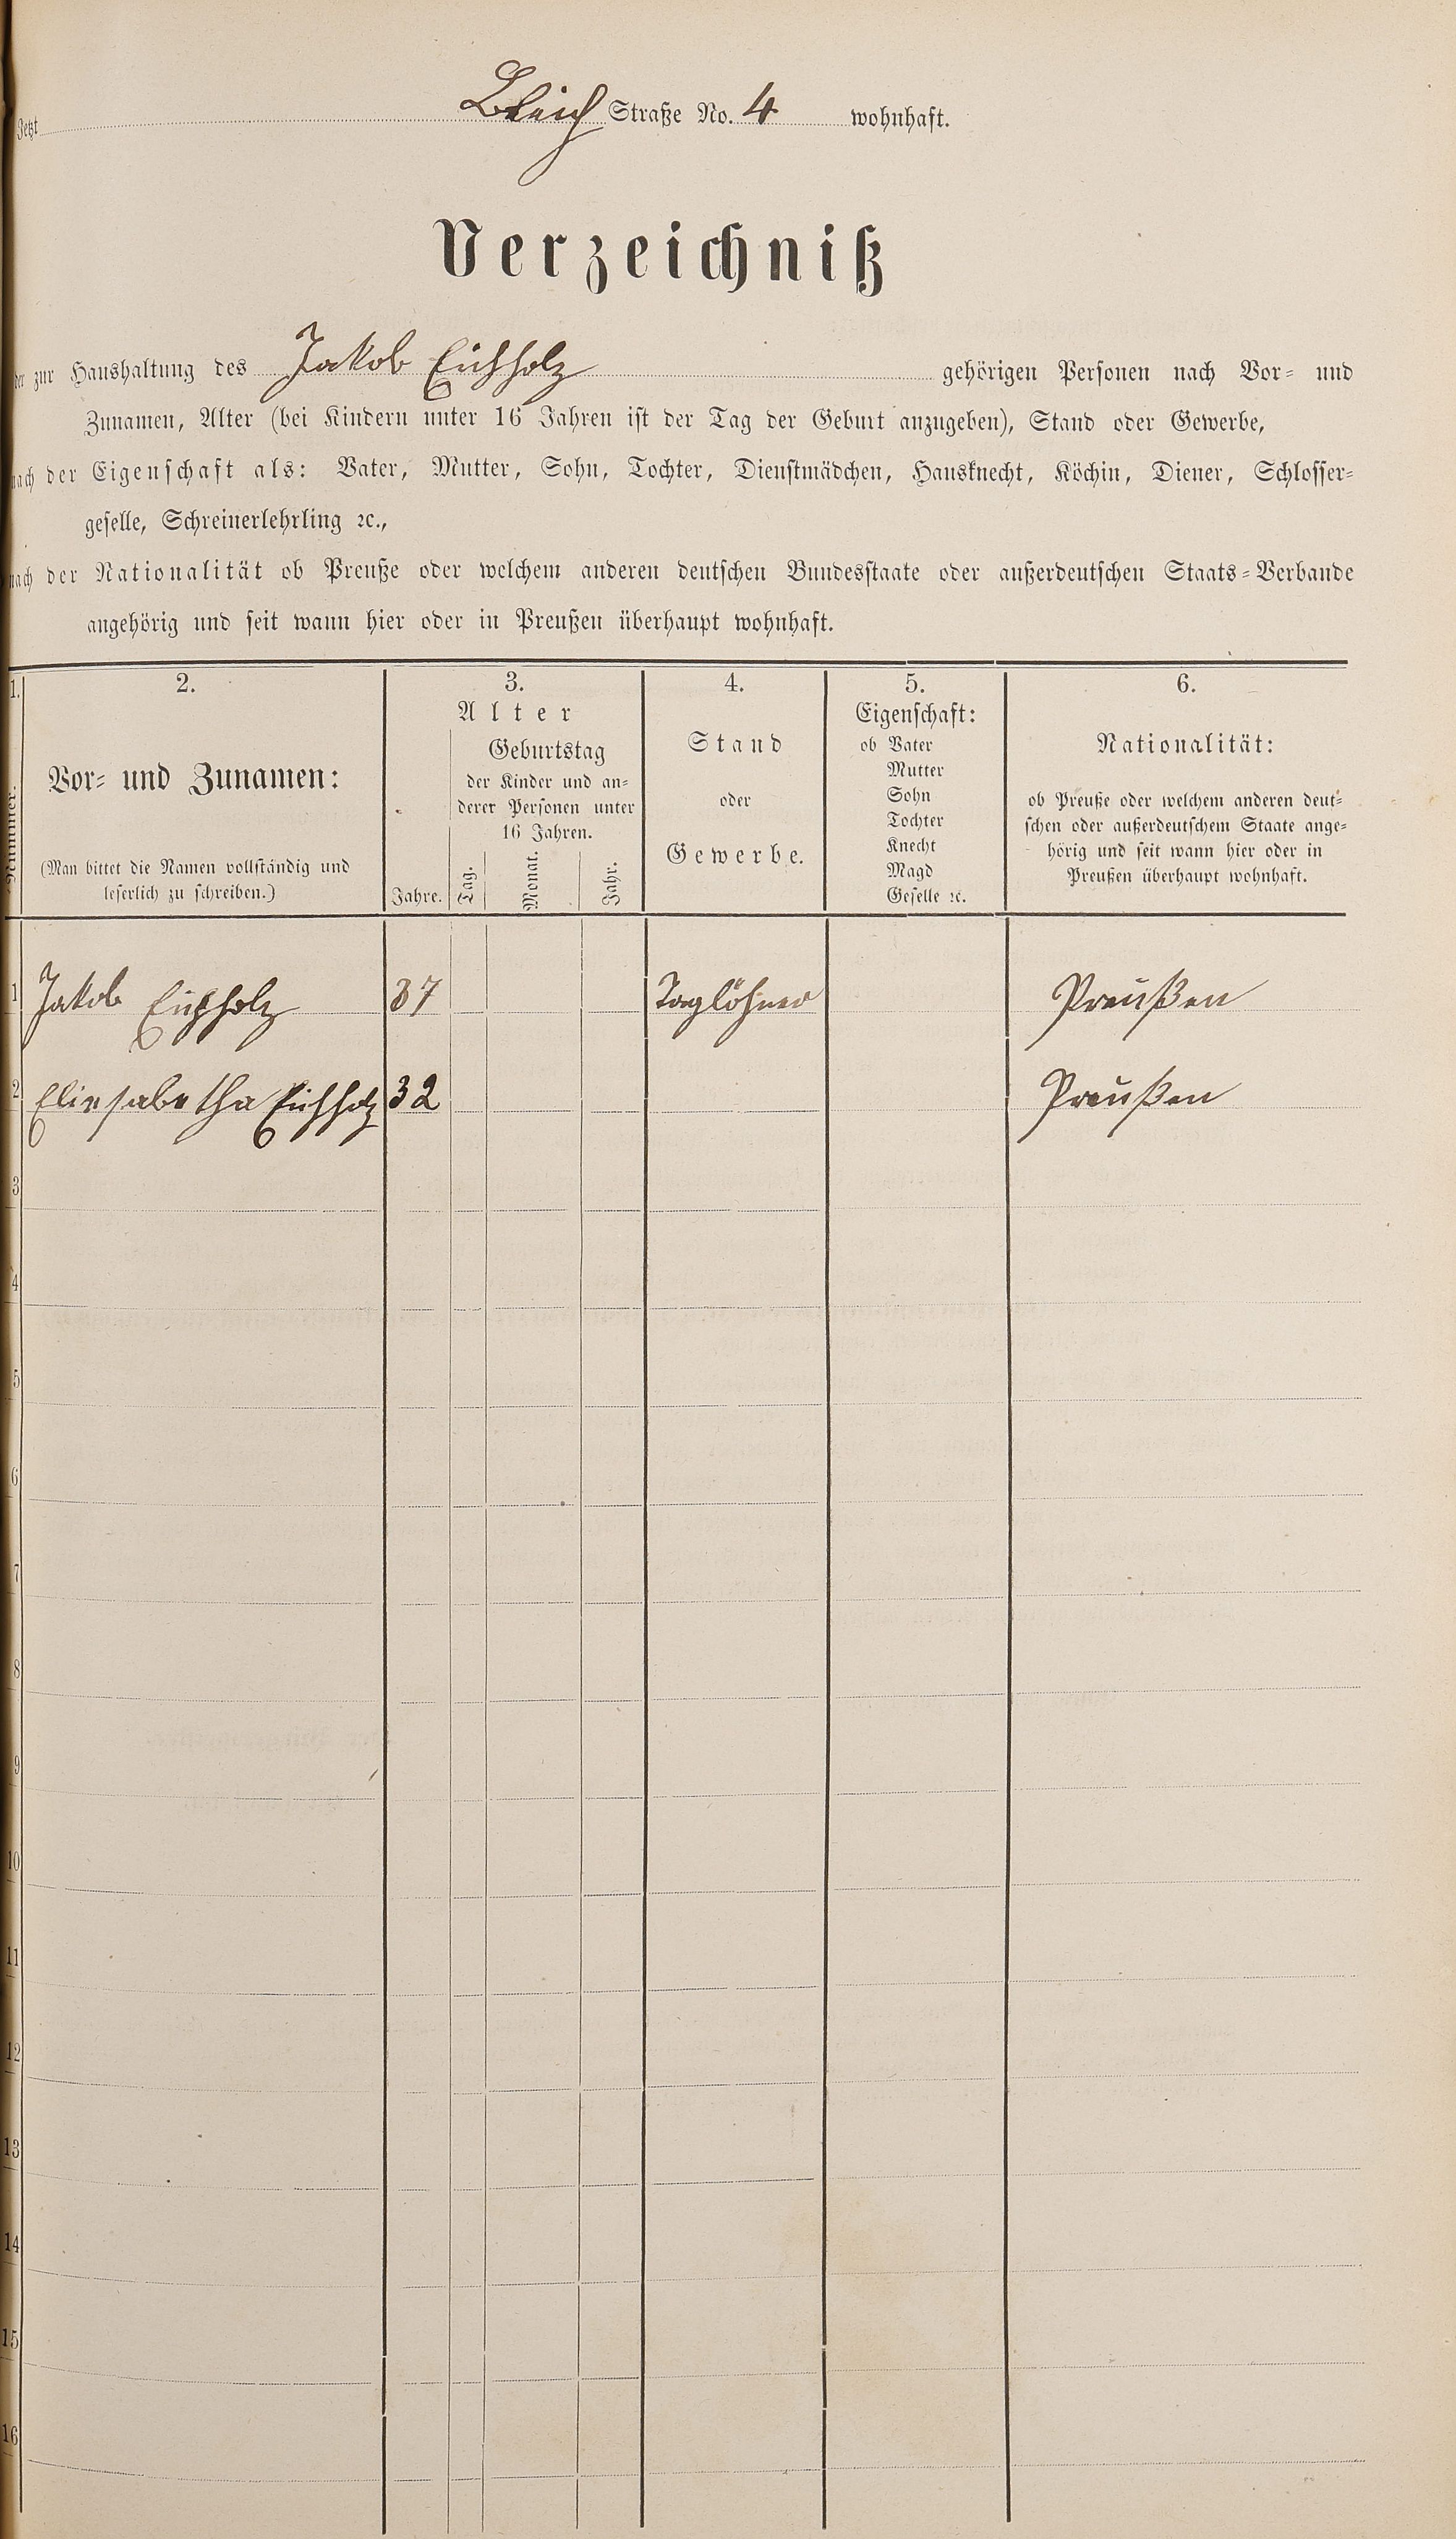 Jetzt Bleich Straße No. 4 wohnhaft.
Verzeichniß
der zur Haushaltung des Jakob Eichholz gehörigen Personen nach Vor- und
Zunamen, Alter (bei Kindern unter 16 Jahren ist der Tag der Geburt anzugeben), Stand oder Gewerbe,
nach der Eigenschaft als: Vater, Mutter, Sohn, Tochter, Dienstmädchen, Hausknecht, Köchin, Diener, Schlosser-
geselle, Schreinerlehrling ꝛc.,
nach der Nationalität ob Preuße oder welchem anderen deutschen Bundesstaate oder außerdeutschen Staats-Verbande
angehörig und seit wann hier oder in Preußen überhaupt wohnhaft.
1.
Nummer.
2.
Vor- und Zunamen:
(Man bittet die Namen vollständig und
leserlich zu schreiben.)
3.
Alter
Jahre.
Geburtstag
der Kinder und an-
derer Personen unter
16 Jahren.
Tag.
Monat.
Jahr.
4.
Stand
oder
Gewerbe.
5.
Eigenschaft:
ob Vater
Mutter
Sohn
Tochter
Knecht
Magd
Geselle ꝛc.
6.
Nationalität:
ob Preuße oder welchem anderen deut-
schen oder außerdeutschem Staate ange-
hörig und seit wann hier oder in
Preußen überhaupt wohnhaft.
1 Jakob Eichholz 37 Taglöhner Preußen
2 Eliesabetha Eichholz 32 Preußen
3
4
5
6
7
8
9
10
11
12
13
14
15
16